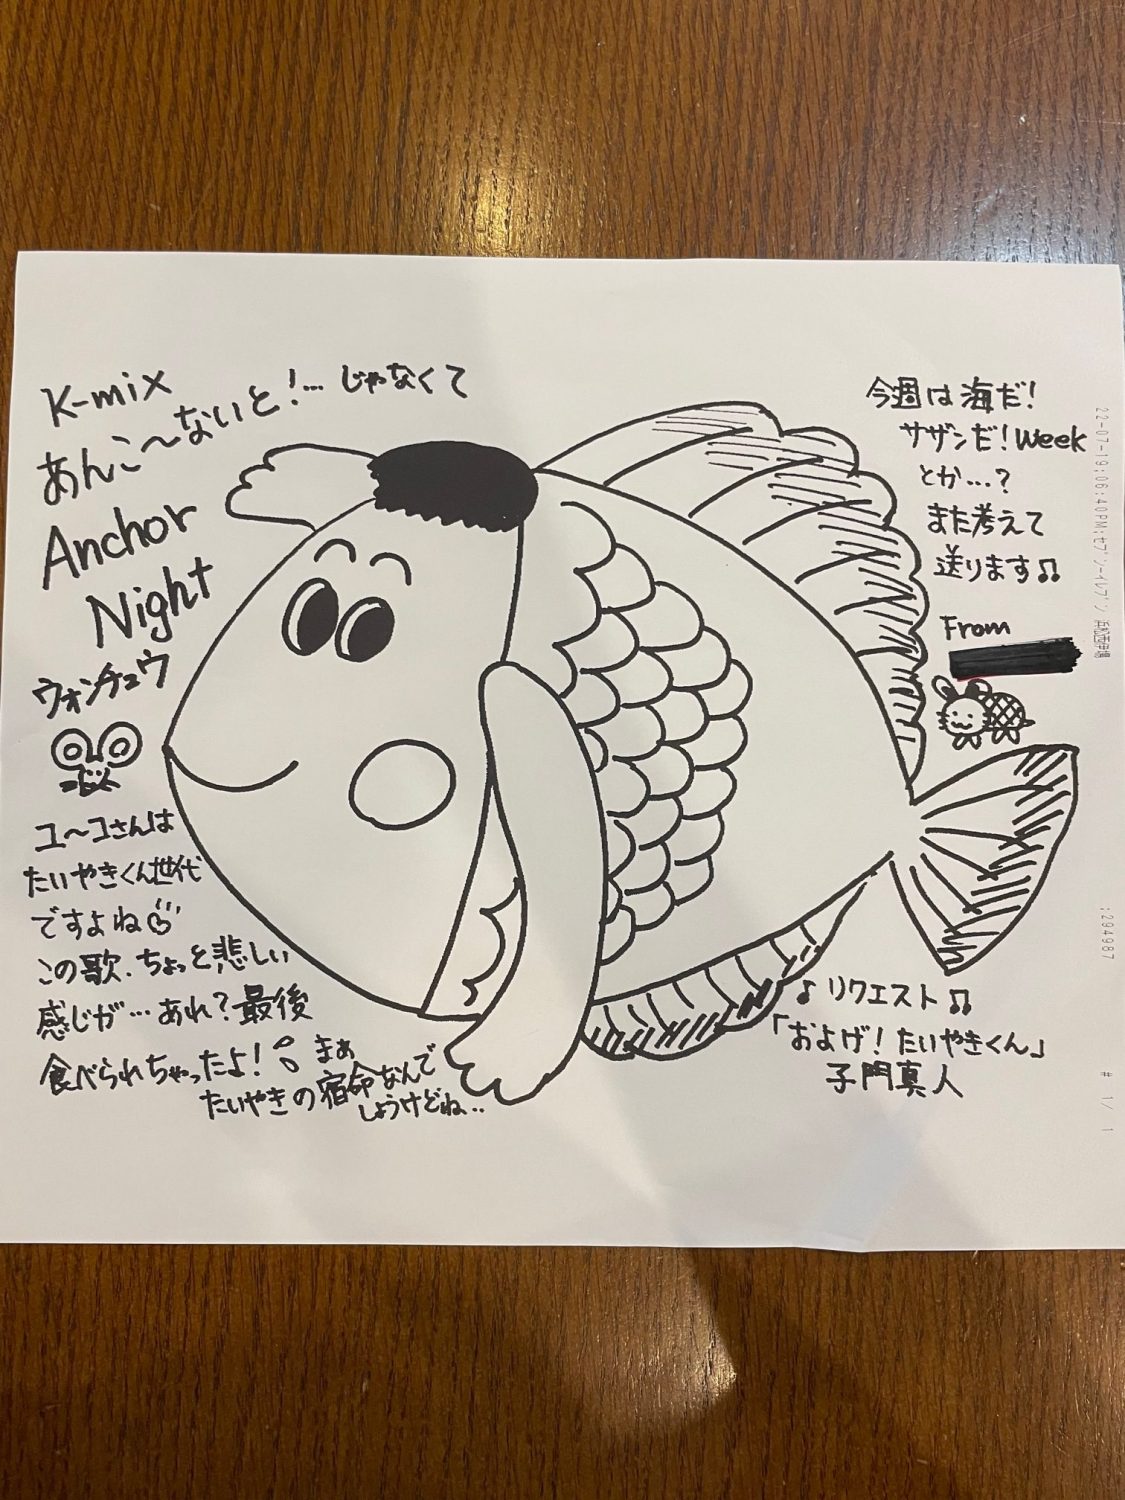 K-mix
あんこ〜ないと!… じゃなくて
Anchor
Night
ウォンチュウ
ユ〜コさんは
たいやきくん世代
ですよね
この歌、ちょっと悲しい
感じが…あれ?最後
食べられちゃったよ!
まぁ
たいやきの宿命なんで
しょうけどね..
今週は海だ!
サザンだ!Week
とか…?
また考えて
送ります♫
From
♪ リクエスト ♫
「およげ!たいやきくん」
子門真人
22-07-19;06:40PM;セブン-イレブン
;294987
# 1/ 1